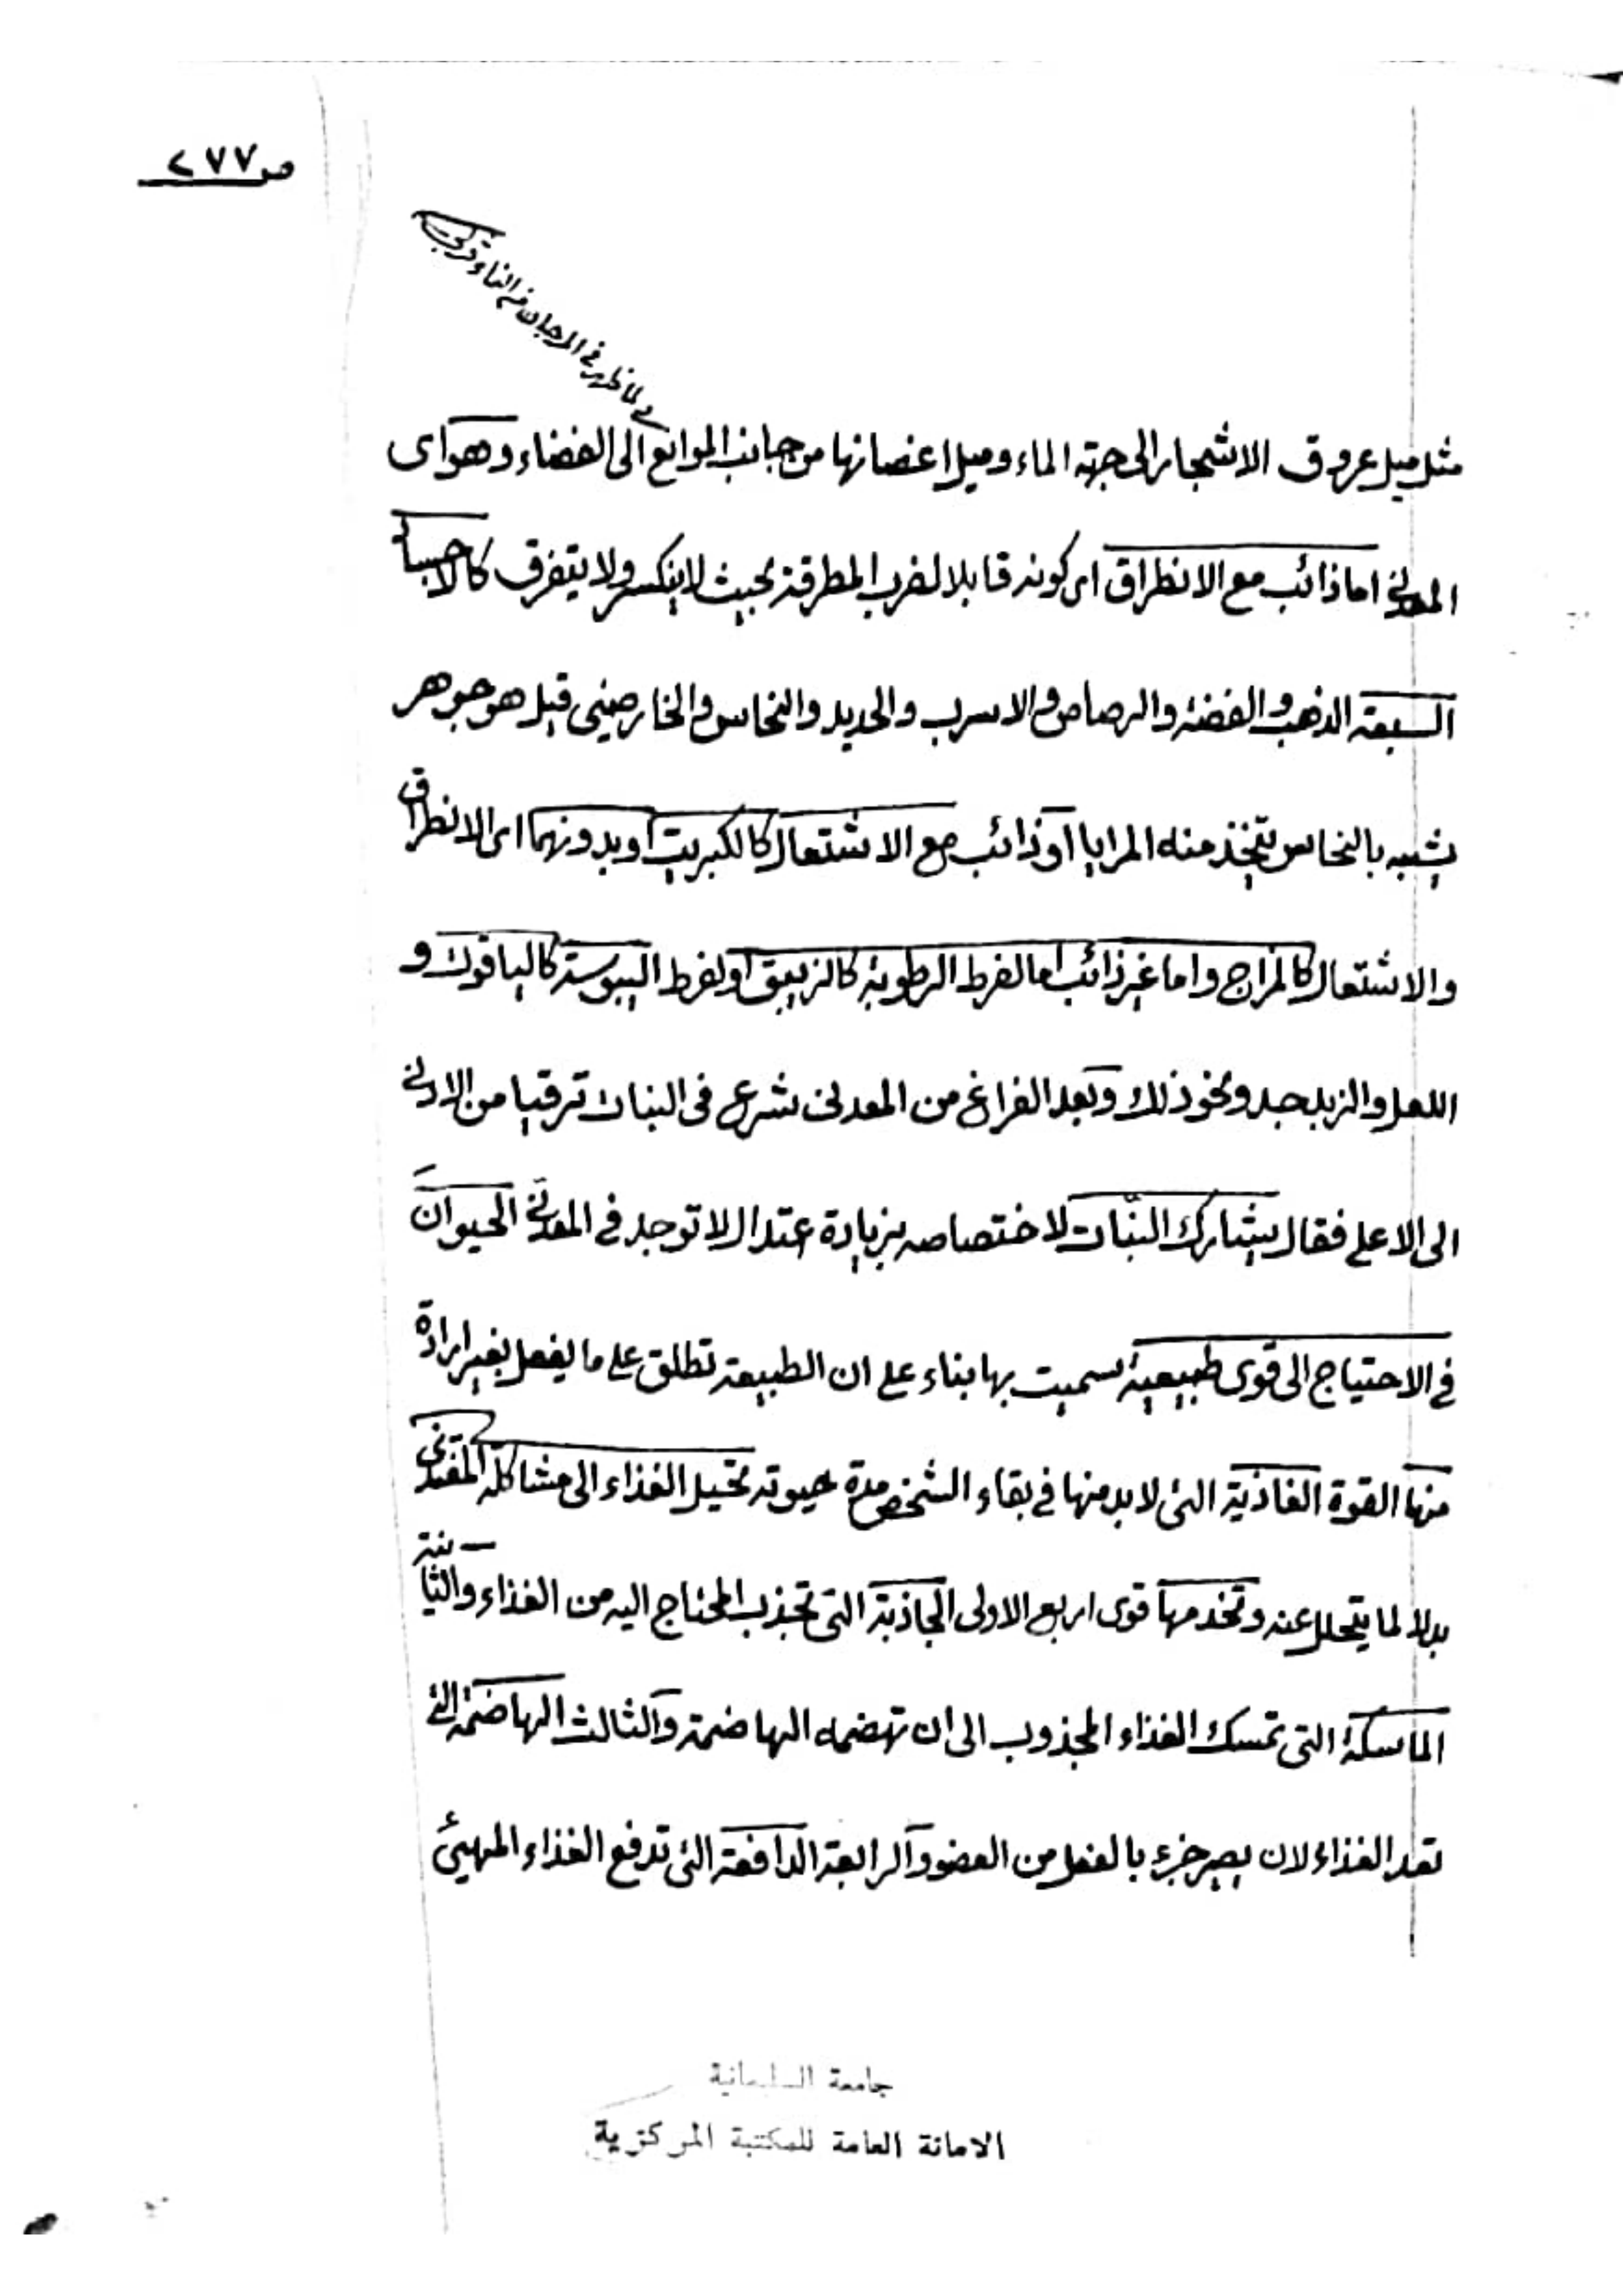 ص ٢٧٧
ظهر في المرجان من النماء
مثل ميل عروق الاشجار الى جهة الماء وميل اغصانها من جانب الموانع الى الفضاء وهو اى
المعدنى اما ذائب مع الانطراق اى كونه قابلا لضرب المطرقة بحيث لا ينكسر ولا يتفرق كالاجسا
السبعة الذهب والفضة والرصاص والاسرب والحديد والنحاس والخارصينى قيل هو جوهر
يشبه بالنحاس يتخذ منه المرايا او ذائب مع الاشتعال كالكبريت او بدونهما اى الانطراق
والاشتعال كالزاج واما غير ذائب اما لفرط الرطوبة كالزيبق او لفرط اليبوسة كالياقوت و
اللعل والزبرجد ونحو ذلك وبعد الفراغ من المعدنى شرع فى النبات ترقيا من الادنى
الى الاعلى فقال يشارك النبات لاختصاصه بزيادة اعتدال لا توجد في المعدنى الحيوان
في الاحتياج الى قوى طبيعية سميت بها بناء على ان الطبيعة تطلق على ما يفعل بغير ارادة
منها القوة الغاذية التى لا بد منها في بقاء الشخص مدة حيوته تحيل الغذاء الى مشاكلة المغتذى
بدلا لما يتحلل عنه وتخدمها قوى اربع الاولى الجاذبة التى تجذب المحتاج اليه من الغذاء والثانية
الماسكة التى تمسك الغذاء المجذوب الى ان تهضمه الهاضمة والثالث الهاضمة التى
تعد الغذاء لان يصير جزء بالفعل من العضو والرابعة الدافعة التى تدفع الغذاء المهيئ
جامعة السليمانية
الامانة العامة للمكتبة المركزية